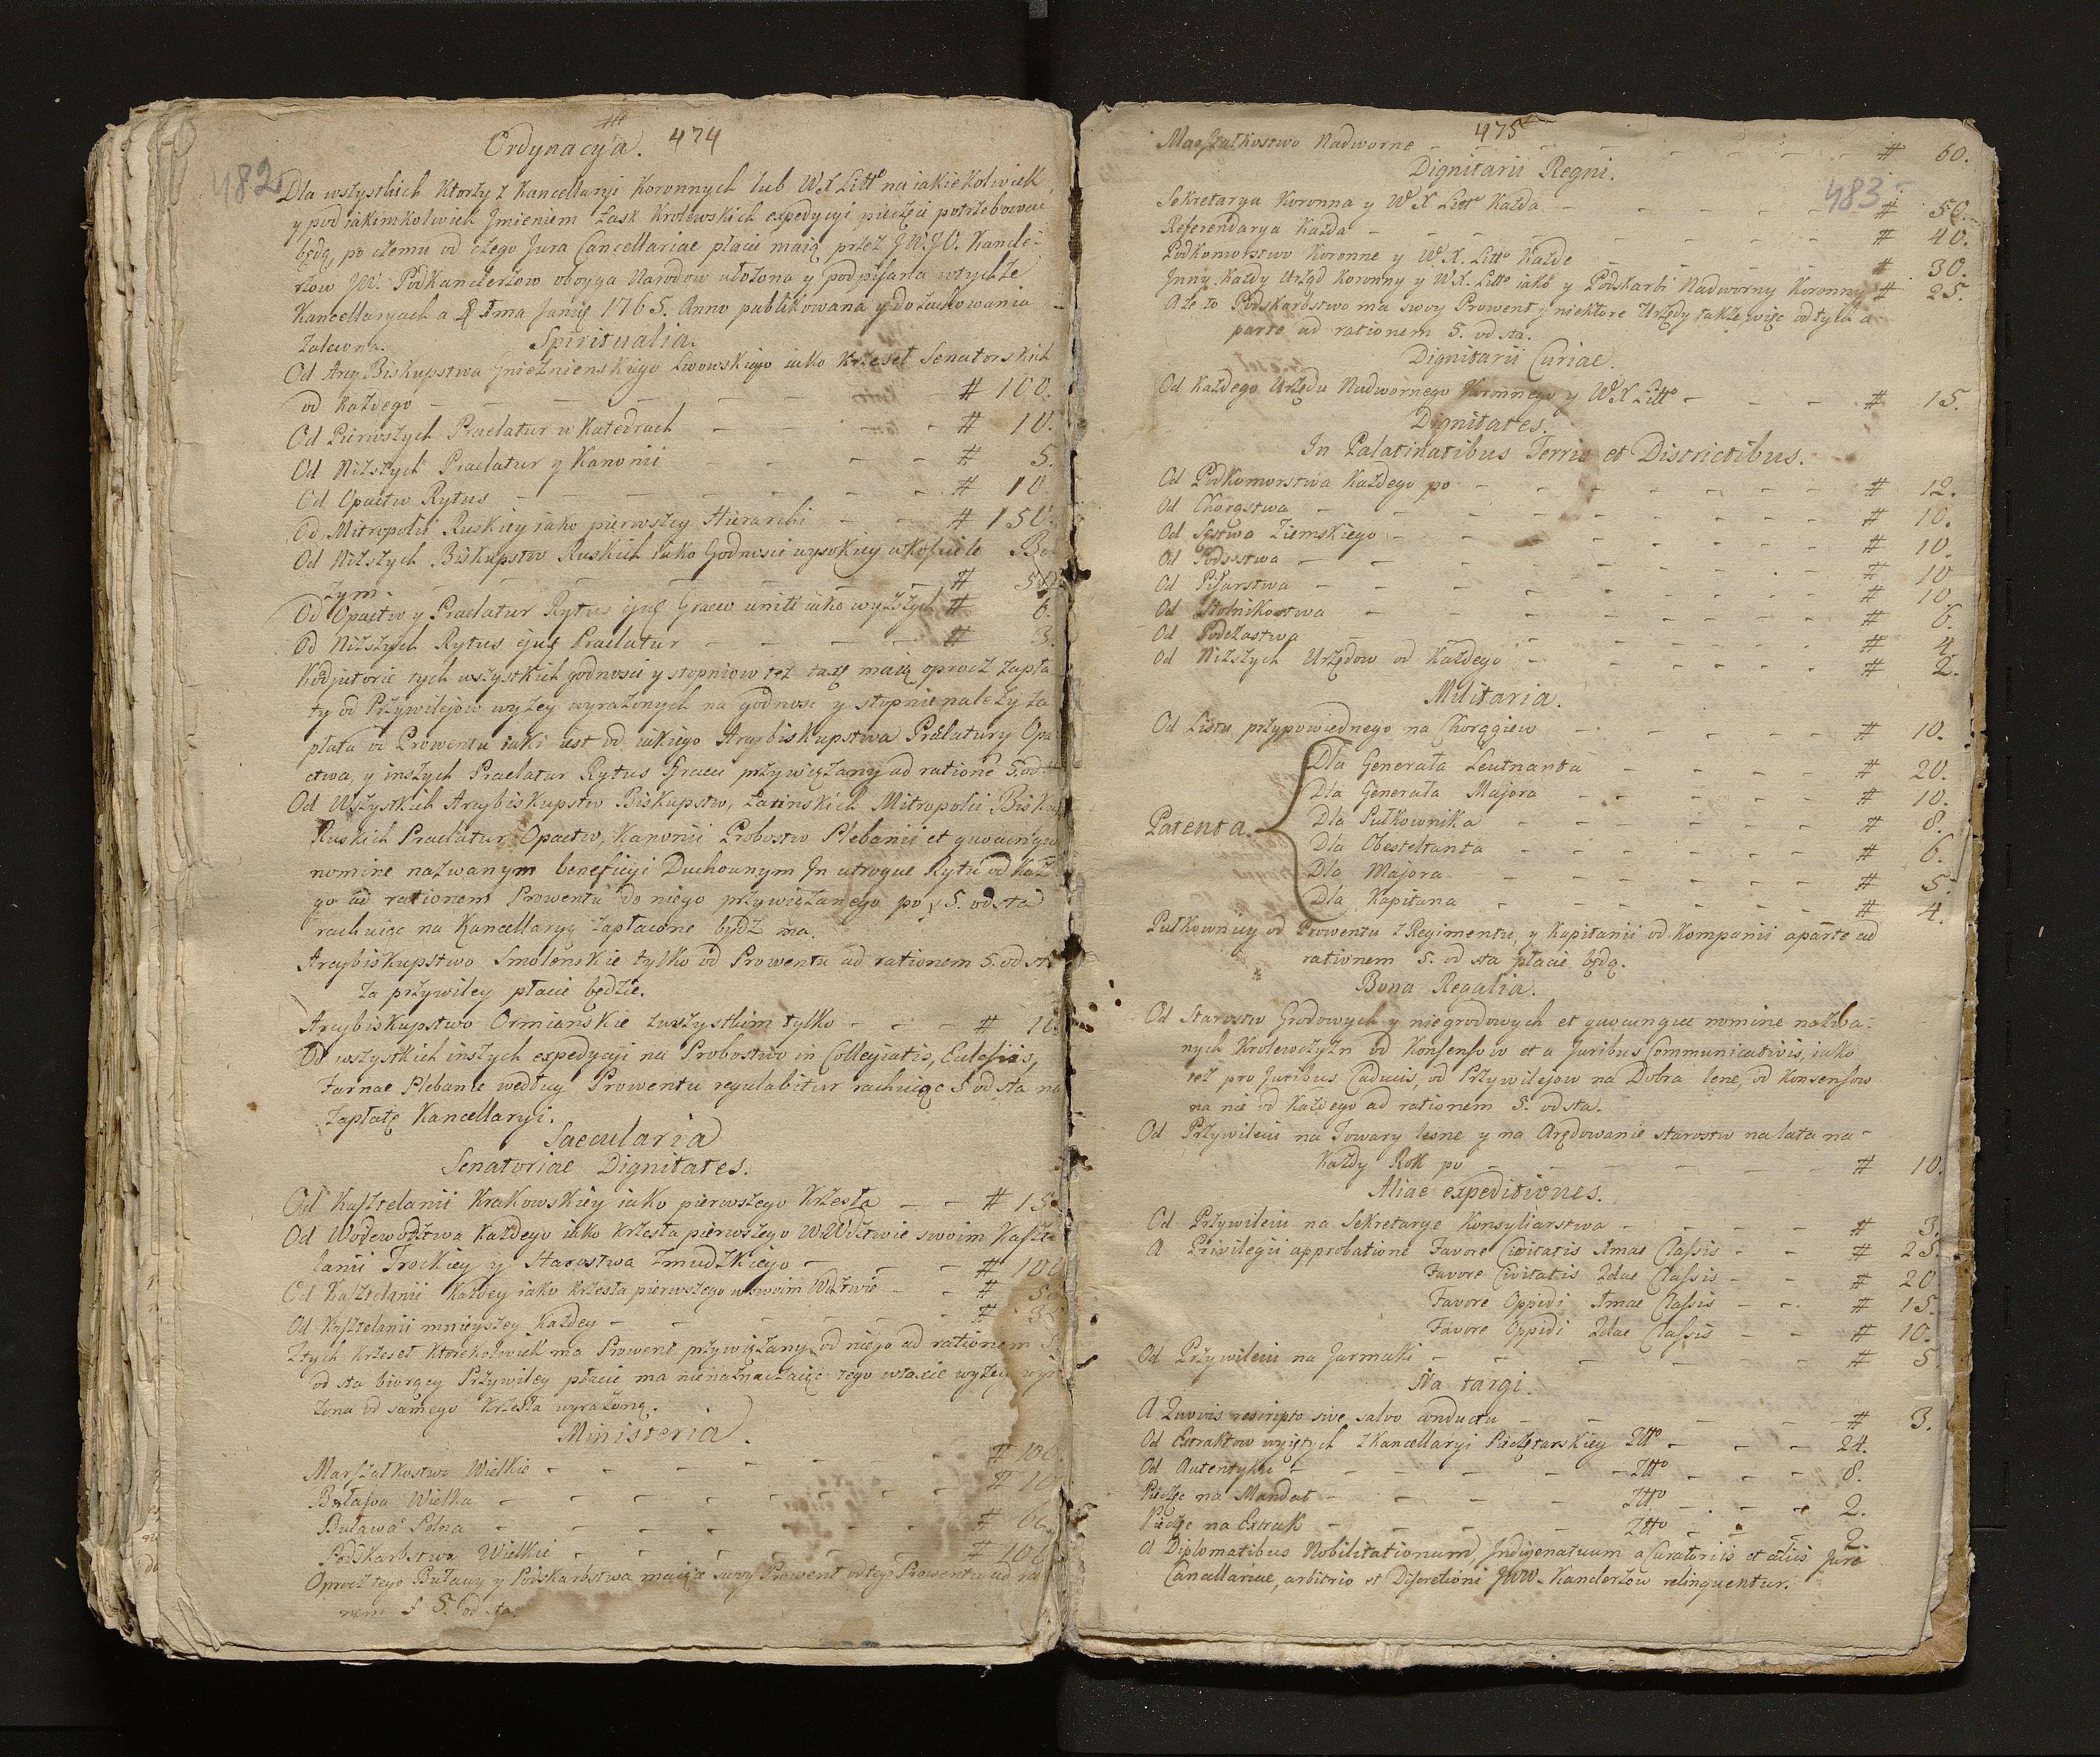 Ordynacya. 474
482
Dla wszystkich ktorzy z Kancellaryi Koronnych lub WX Litto na iakiekolwiek
y pod iakimkolwiek Jmieniem Łask Krolewskich expedycyi pieczęci potrzebować
będą, po czemu od czego Jura Cancellariae płacić maią przez JWJO. Kancle-
rzow JW. Podkanclerzow oboyga Narodow ułożona y podpisana wtychże
Kancellaryach a 1ma Januarij 1765. Anno publikowana y do zachowania
zalecona.
Spiritualia.
Od Arcy Biskupstwa Gnieznienskiego Lwowskiego iako Krzeseł Senatorskich
od Każdego - - - # 100.
Od Pierwszych Praelatur w Katedrach - - - # 10.
Od Niższych Praelatur y Kanonii - - - # 5.
Od Opactw Rytus - - - # 10.
Od Mitropolii Ruskiey iako pierwszey Hierarchi - - # 150.
Od Niższych Biskupstw Ruskich iako Godnosci wysokiey w Kościele Bo-
żym - - - # 50.
Od Opactw y Praelatur Rytus Graeco uniti iako wyższych # 6.
Od Niższych Rytus ejus Praelatur - - - # 3.
Koadjutorie tych wszystkich godnosci y stopniow też taxę maią oprocz zapła-
ty od Przywilejow wyżey wyrażonych na godnosc y stopnie należy za
płata od Prowentu iaki iest od iakiego Arcybiskupstwa Prælatury Opa
ctwa, y inszych Praelatur Rytus Graeci przywiązany ad rationē 5. od
Od Wszystkich Arcybiskupstw Biskupstw, Łacinskich Mitropolii Biskup
Ruskich Praelatur, Opactw, Kanonii Probostw Plebanii et quocunque
nomine nazwanym beneficyi Duchownym Jn utroque Rytu od Każde
go ad rationem Prowentu do niego przywiązanego po 5. od sta
rachuiąc na Kancellaryą zapłacone bydź ma.
Arcybiskupstwo Smolenskie tylko od Prowentu ad rationem 5. od sta
za przywiley płacić będzie.
Arcybiskupstwo Ormianskie zwszystkim tylko - - - # 10.
Od wszystkich inszych expedycyi na Probostwo in Collegiatis, Eclesiis,
Farnae Plebanie według Prowentu regulabitur rachuiąc 5 od sta na
Zapłatę Kancellaryi.
Saecularia
Senatoriae Dignitates.
Od Kasztelanii Krakowskiey iako pierwszego Krzesła - - # 150
Od Wojewodztwa Każdego iako Krzesła pierwszego w Wdztwie swoim Kaszte
lanii Trockiey y Starostwa Zmudzkiego - - - # 100
Od Kasztelanii Każdey iako Krzesła pierwszego w swoim Wdztwie - - # 50
Od Kasztelanii mnieyszey Każdey - - - # 3
Ztych Krzeseł ktorekolwiek ma Prowent przywiązany od niego ad rationem 5.
od sta biorący Przywiley płacić ma nienaznaczaiąc tego w taxie wyżey wyra
żona od samego Krzesła wyrażoną.
Ministeria.
Marszałkostwo Wielkie - - - # 100.
Buława Wielka - - - # 10
Buława Polna - - - # 60
Podskarbstwo Wielkie - - - # 100
Oprocz tego Buławy y Podskarbstwa maiące swoy Prowent od tego Prowentu ad ra
nem 5. od sta.
475
Marszałkostwo Nadworne - - - # 60.
Dignitarii Regni.
483
Sekretarya Koronna y W.X. Litto Każda - - - # 50.
Referendarya Każda - - - # 40.
Podkomorstwo Koronne y W.X. Litto Każde - - - # 30.
Jnny Każdy Urząd Koronny y W.X. Litto iako y Podskarbi Nadworny Koronny # 25.
Ale to Podskarbstwo ma swoy Prowent y niektore Urzędy także więc od tych a
parte ad rationem 5. od sta.
Dignitarii Curiae.
Od Każdego Urzędu Nadwornego Koronnego y W.X Litto - - - # 15.
Dignitates.
In Palatinatibus Terris et Districtibus.
Od Podkomorstwa Każdego po - - - # 12.
Od Chorąstwa - - - # 10.
Od Sęstwa Ziemskiego - - - # 10.
Od Podsęstwa - - - # 10
Od Pisarstwa - - - # 10.
Od Stolnikostwa - - - # 6.
Od Podczastwa - - - # 4
Od Niższych Urzędow od Każdego - - - # 2.
Militaria.
Od Listu przypowiednego na Chorągiew - - - # 10.
Patenta.
Dla Generała Leutnanta - - - # 20.
Dla Generała Majora - - - # 10.
Dla Pułkownika - - - # 8.
Dla Obesteltanta - - - # 6.
Dla Majora - - - # 5.
Dla Kapitana - - - # 4.
Pułkownicy od Prowentu z Regimentu, y Kapitanii od Kompanii aparte ad
rationem 5. od sta płacić będą.
Bona Regalia.
Od Starostw Grodowych y niegrodowych et quocunque nomine nazwa-
nych Krolewczyzn od Konsensow et a Juribus Communicativis, iako
też pro Juribus Caducis, od Przywilejow na Dobra lene, od Konsensow
na nie od Każdego ad rationem 5. od sta.
Od Przywileiu na Towary lesne y na Arędowanie starostw na lata na-
Każdy Rok po - - - # 10.
Aliae expeditiones.
Od Przywileiu na Sekretarye Konsyliarstwa - - - # 3.
A Privilegii approbatione Favore Civitatis 1mae Classis - - # 25.
Favore Civitatis 2dae Classis - - # 20.
Favore Oppidi 1mae Classis - - # 15.
Favore Oppidi 2dae Classis - - # 10.
Od Przywileiu na Jarmaki - - - # 5
Na targi.
A Quovis rescripto sive salvo conductu - - - # 3.
Od Extraktow wyiętych z Kancellaryi Pieczętarskiey Złło - - - 24.
Od Autentyku - - - Złło - - - 8.
Pieczęc na Mandat - - - Złło - - - 2.
Pieczęc na Extrak - - - Złło - - - 2
A Diplomatibus Nobilitationum, Jndigenatuum a Curatoriis et aliis Jura
Cancellariae, arbitrio et Discretioni JWW. Kanclerzow relinquentur.